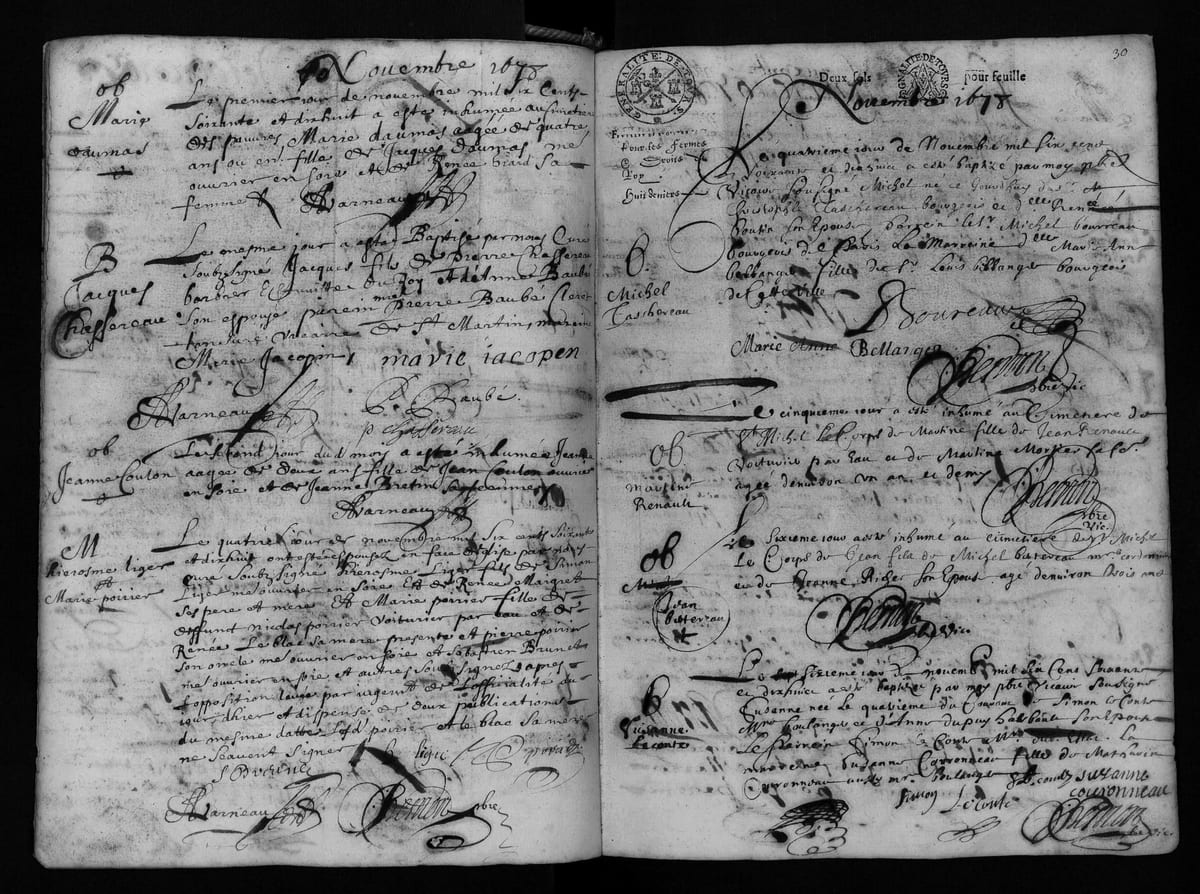 Novembre 1678
ob
Marie
daumas
Le premier jour de novembre mil six cents
soixante et dixhuit a esté inhumée au simetiere
des pauvres Marie daumas aagée de quatre
ans ou en fille de Jacques daumas me
ouvrier en soie et de Renée Viard sa
femme
Varneau
B
Jacques
Chassereau
Le mesme jour a esté Baptisé par nous Curé
soubzsigné Jacques fils de Pierre Chassereau
barbier et du Roy et d'Anne Baubé
son espouse parein Pierre Baubé Clerc
de St Martin, mareine
Marie Jacopin, marie iacopen
Varneau
P. Baubé.
p chassereau
ob
Jeanne Couton
Le second jour dud mois a esté inhumée Jeanne
aagée de deux ans fille de Jean Couton ouvrier
en soie et de Jeanne Bretin sa femme
Varneau
M
hierosme liger
et
Marie poirier
Le quatriesme jour de novembre mil six cents soixante
et dixhuit ont esté espousez en face d'eglise par nous
curé soubzsigné hierosme Liger fils de Simon
Liger me ouvrier en soie et de Renée Maigret
ses pere et mere et Marie poirier fille de
deffunct nicolas poirier voiturier par eau et de
Renée Le blac sa mere presente et pierre poirier
son oncle me ouvrier en soie et Sebastien Brunet
me ouvrier en soie et autres soubsignez apres
l'opposition levée par de l'officialité du
jour d'hier et dispense de deux publications
du mesme datte led poirier et le blac sa mere
ne scavent signer
Varneau
Bernon pbre
30
GENERALITE DE TOURS
Deux sols
GENERALITE DE TOURS
pour feuille
Pour les Fermes
& Droits
Roy
Huit deniers
Novembre 1678
B
Michel
Taschereau
Le quatriesme jour de Novembre mil six cens
soixante et dixhuit a esté baptizé par moy pbre
Vicaire sousigné Michel né ce jourdhuy du sr
Christophle Taschereau bourgeois et delle Renée
Boutin son Epouse parrein le sr Michel bourreau
bourgeois de Paris La Marreine delle Marie Anne
bellanger fille de sr Louis bellanger bourgeois
de cette ville
Boureau
Marie Anne Bellanger
Bernon
pbre vic
ob
martine
Renault
Le cinquieme jour a esté inhumé au Cimetiere de
St Michel Le Corps de Martine fille de Jean Renault
voiturier par Eau et de Martine sa fe.
agée denviron un an et demy
Bernon
pbre
vic.
ob
Jean
battereau
Le sixieme jour a esté inhumé au cimetiere de St Michel
Le Corps de Jean fils de Michel battereau mre cordonnier
et de Jeanne Richer son Epouse agé denviron trois ans
Bernon
pbre vic
B
Suzanne
Leconte
Le sixieme jour de novembre mil six cens soixante
et dixhuict a esté baptizée par moy pbre vicaire soussigné
Suzanne née le quatrieme du Courant de Simon le Conte
Mre boulanger et d'Anne dupuy son Epouse
Le parrain Simon le Conte La
marreine Suzanne Couronneau fille de Mathurin
Couronneau aussy mre boulanger
Simon Leconte
suzanne
couronneau
Bernon
pbre vic.